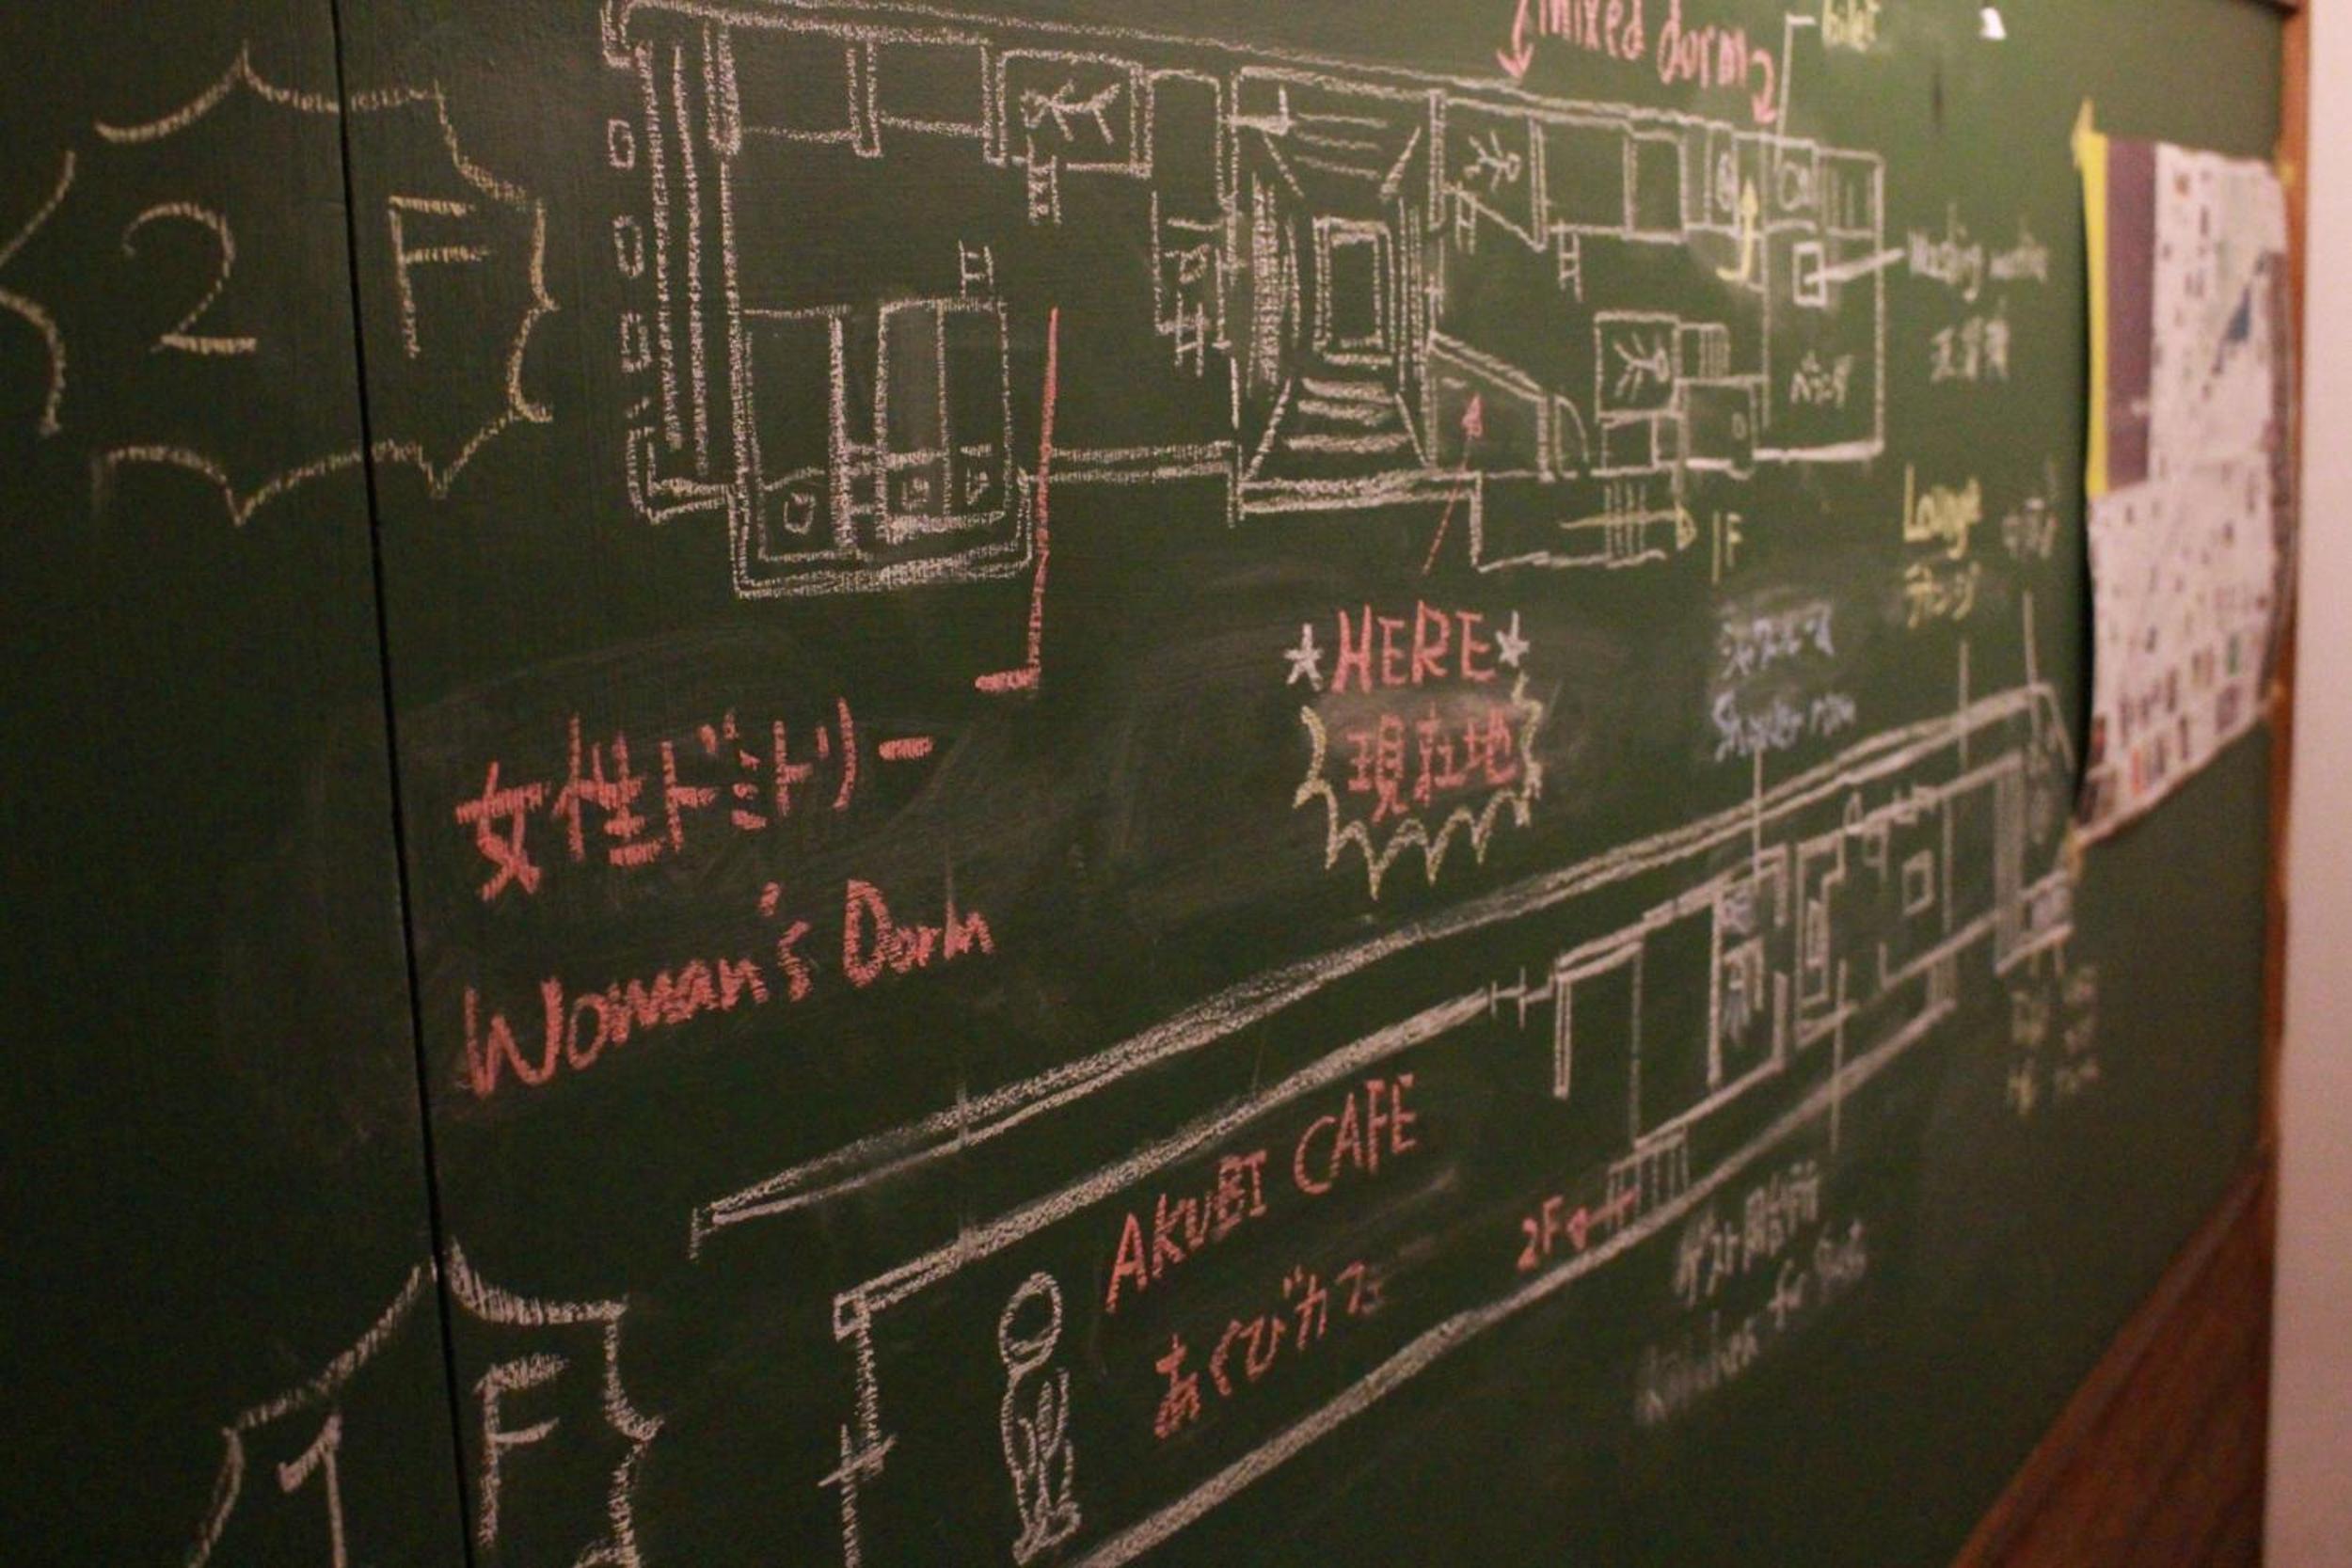 mixed dorm
Toilet
2F
Washing machine
洗濯機
ベランダ
1F
Lounge
ラウンジ
*HERE*
現在地
シャワー
Shower room
女性ドミトリー
Woman's Dorm
AKUBI CAFE
あくびカフェ
2F
ゲスト用台所
Kitchen for Guests
1F